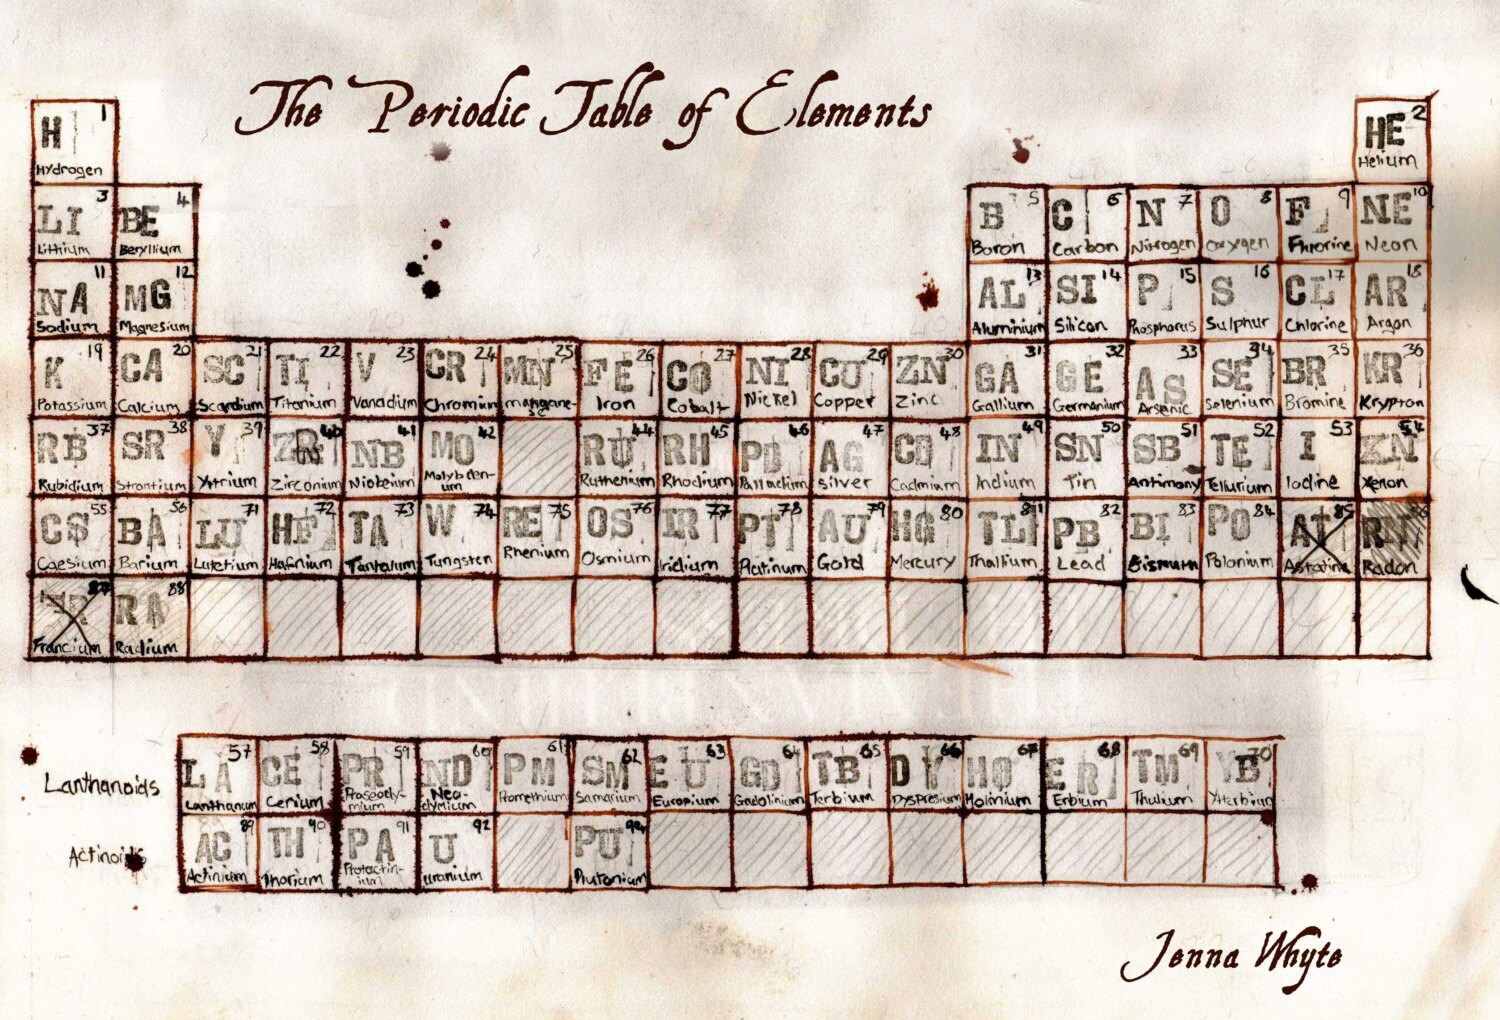 The Periodic Table of Elements
1 2
H HE
Hydrogen Helium
3 4 5 6 7 8 9 10
LI BE B C N O F NE
Lithium Beryllium Boron Carbon Nitrogen Oxygen Fluorine Neon
11 12 13 14 15 16 17 18
NA MG AL SI P S CL AR
Sodium Magnesium Aluminium Silicon Phosphorus Sulphur Chlorine Argon
19 20 21 22 23 24 25 26 27 28 29 30 31 32 33 34 35 36
K CA SC TI V CR MN FE CO NI CU ZN GA GE AS SE BR KR
Potassium Calcium Scandium Titanium Vanadium Chromium Iron Cobalt Nickel Copper Zinc Gallium Germanium Arsenic Selenium Bromine Krypton
37 38 39 40 41 42 44 45 46 47 48 49 50 51 52 53 54
RB SR Y ZR NB MO RU RH PD AG CD IN SN SB TE I XN
Rubidium Strontium Yttrium Zirconium Niobeium Molybden-
um Ruthenium Rhodium Silver Cadmium Indium Tin Antimony Tellurium Iodine Xenon
55 56 71 72 73 74 75 76 77 78 79 80 81 82 83 84 85 86
CS BA LU HF TA W RE OS IR PT AU HG TL PB BI PO AT RN
Caesium Barium Lutetium Hafnium Tantalum Tungsten Rhenium Osmium Iridium Platinum Gold Mercury Thallium Lead Bismuth Polonium Astatine Radon
87 88
FR RA
Francium Radium
57 58 59 60 61 62 63 64 65 66 67 68 69 70
LA CE PR ND PM SM EU GD TB DY HO ER TM YB
Lanthanoids
Lanthanum Cerium Praseody-
mium Neo-
dymium Promethium Samarium Europium Gadolinium Terbium Dyspresium Holmium Erbium Thulium Ytterbium
89 90 91 92 94
AC TH PA U PU
Actinoids
Actinium Thorium Protactin-
ium Uranium Plutonium
Jenna Whyte